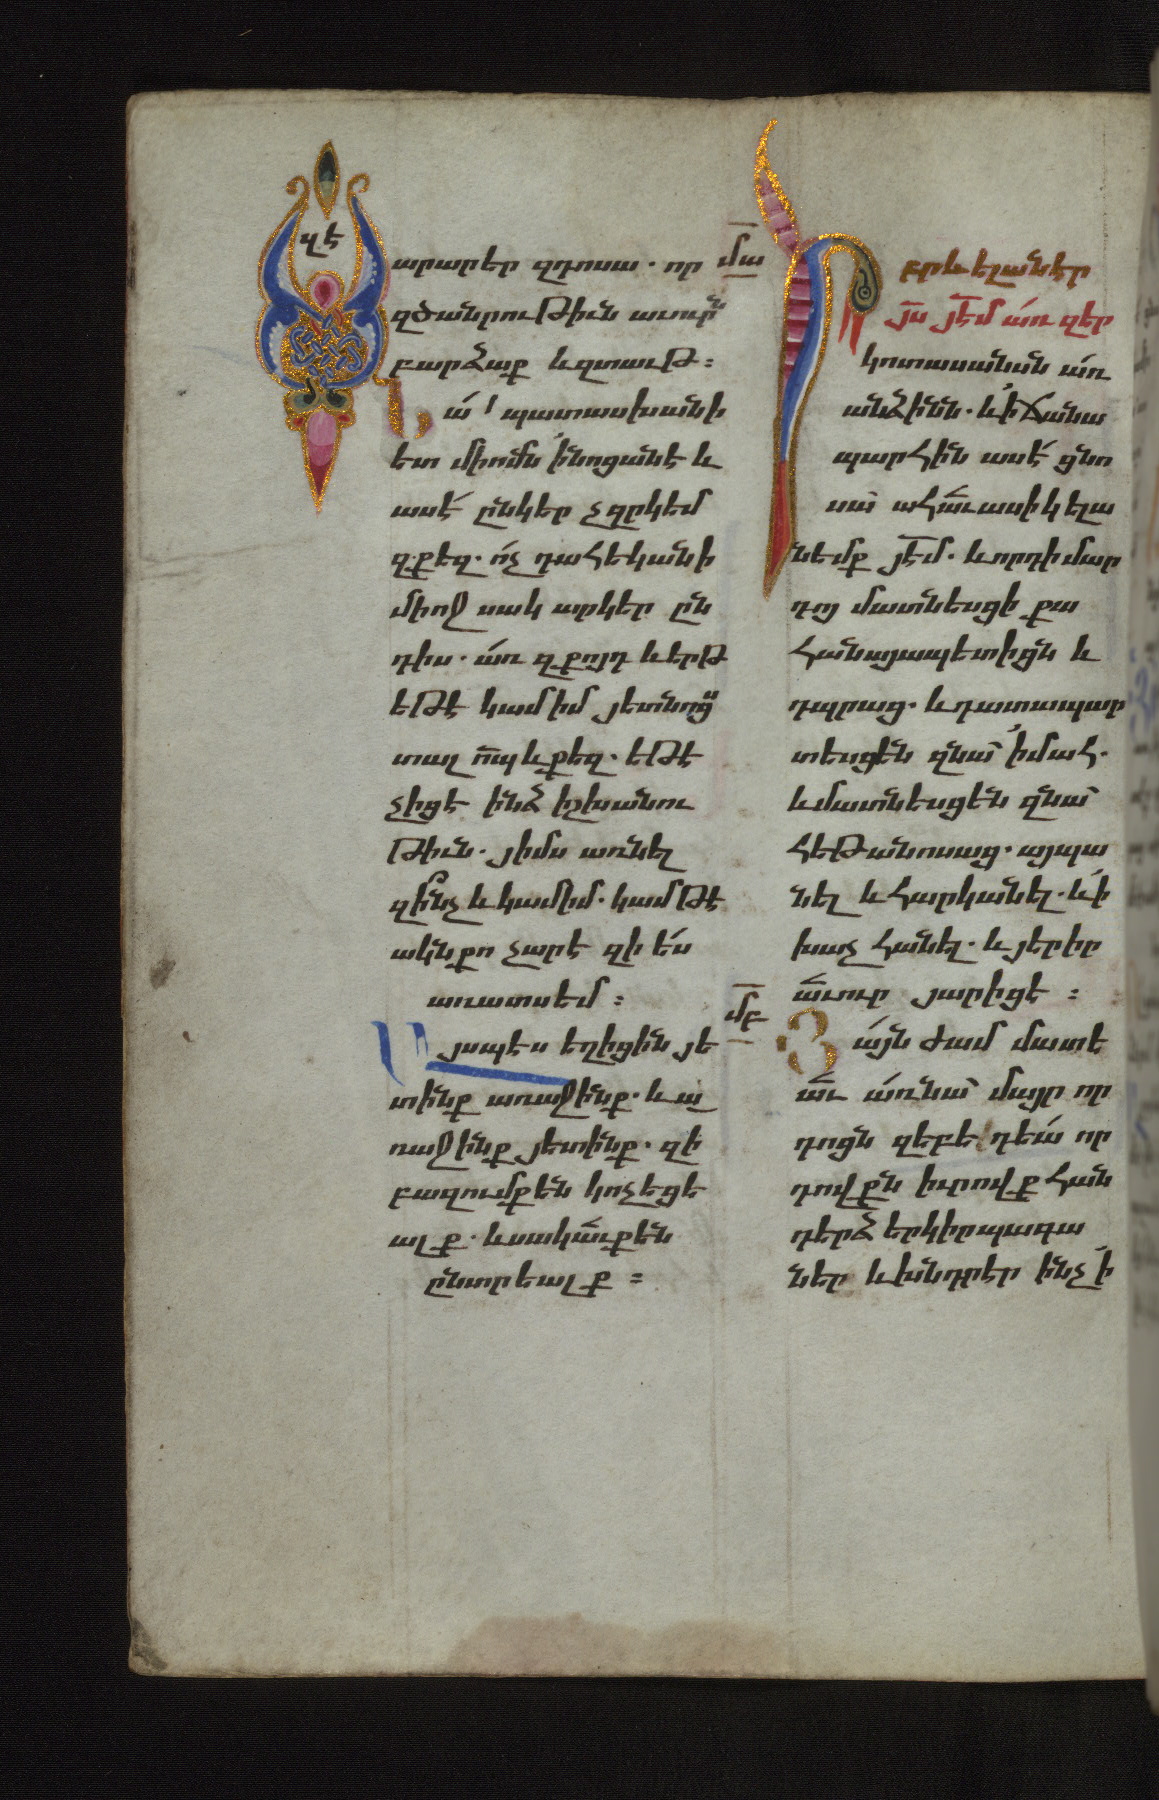 զէ
արարեր զդոսա. որ
զծանրութիւն աւուրն
բարձաք և զտաւթ:
Նա ՛ պատասխանի
ետ միումն ՛ի նոցանէ և
ասէ ընկեր չզրկեմ
զքեզ. ոչ դահեկանի
միոջ սակ արկեր ըն
դիս. առ զքոյդ և երթ
եթէ կամ իմ յետնոցս
տալ որպ և քեզ. եթէ
չիցէ ինձ իշխանու
թիւն. յիմս առնել
զինչ և կամիմ. կամ թէ
ակն քո չար է զի ես
առատս եմ:
Այսպէս եղիցին յե
տինք առաջինք. և ա
ռաջինք յետինք. զի
բազումք են կոչեցե
ալք. և սակաւք են
ընտրեալք:
մա
Եբր ելանէր
յս յէմ առ զեր
կոտասանսն առ
անձինն. և ՛ի ճանա
պարհին ասէ ցնո
սա ահաւասիկ ելա
նեմք յէմ. և որդի մար
դոյ մատնեսցի քա
հանայապետիցն և
դպրաց. և դատապար
տեսցեն զնա ՛ի մահ.
և մատնեսցեն զնա
հեթանոսաց. այպա
նել և հարկանել. և ՛ի
խաչ հանել. և յերիր
աւուր յարիցէ:
մբ
Յայն ժամ մատե
աւ առ նա մայր որ
դոցն զեբեդեա որ
դովքն իւրովք հան
դերձ երկիր պագա
նէր և խնդրէր ինչ ՛ի